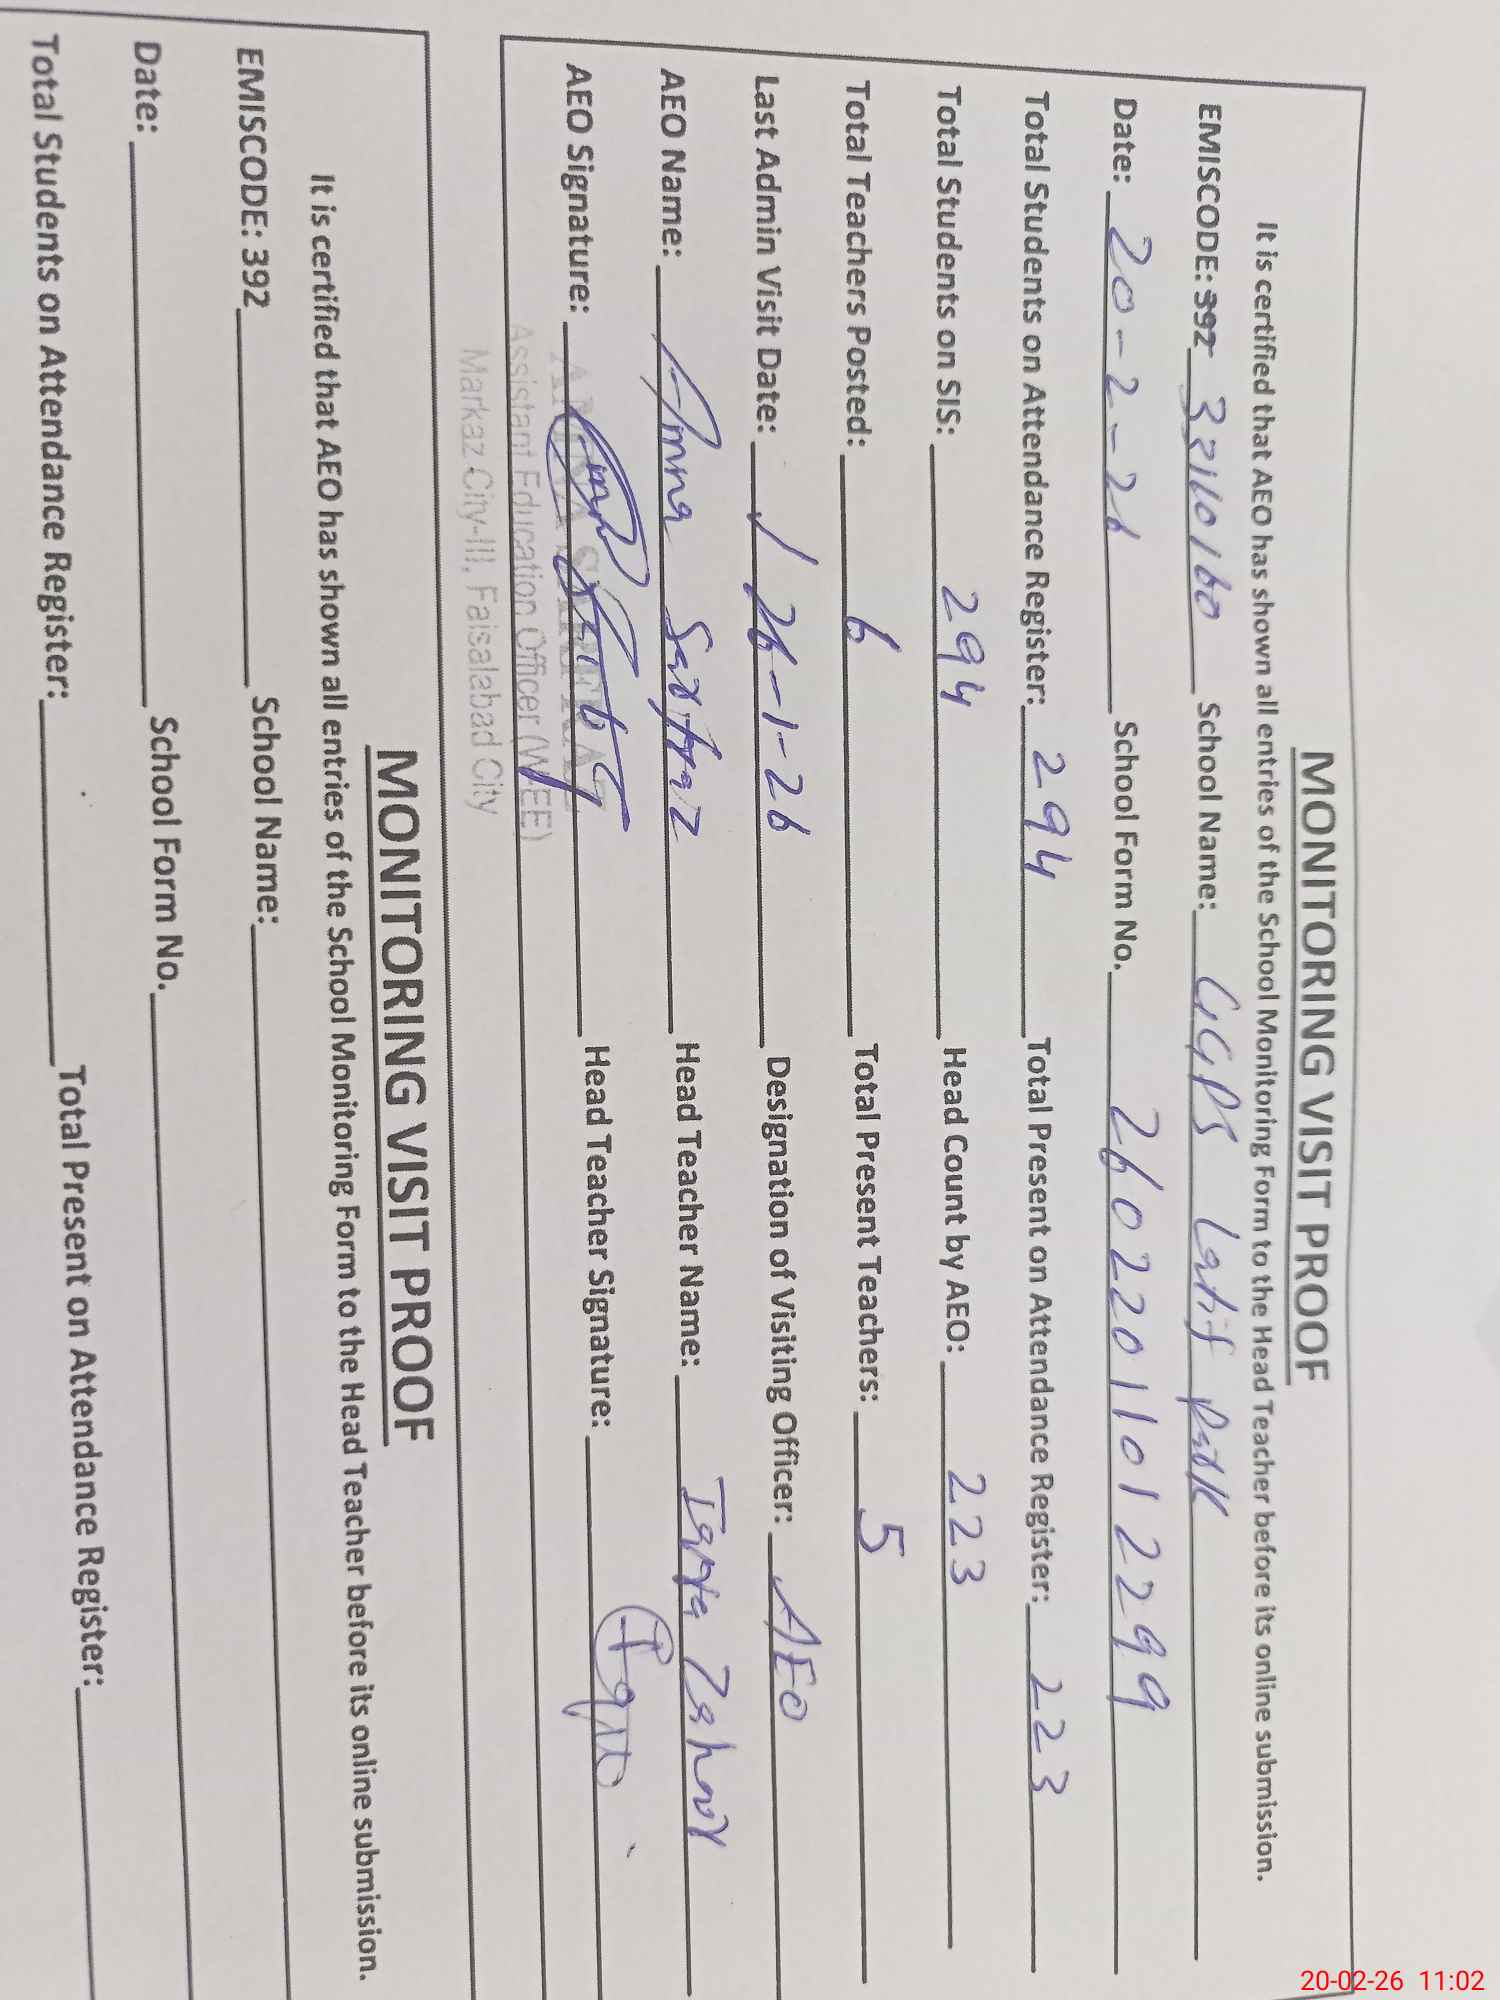 MONITORING VISIT PROOF
It is certified that AEO has shown all entries of the School Monitoring Form to the Head Teacher before its online submission.
EMISCODE: 392 33210160 School Name: GGPS Latif Park
Date: 20-2-26 School Form No. 26022011012299
Total Students on Attendance Register: 294 Total Present on Attendance Register: 223
Total Students on SIS: 294 Head Count by AEO: 223
Total Teachers Posted: 6 Total Present Teachers: 5
Last Admin Visit Date: 26-1-26 Designation of Visiting Officer: AEO
AEO Name: Amna Sarfraz Head Teacher Name: Zahoor
AEO Signature: Head Teacher Signature:
AMNA SARFRAZ
Assistant Education Officer (W-EE)
Markaz City-III, Faisalabad City
MONITORING VISIT PROOF
It is certified that AEO has shown all entries of the School Monitoring Form to the Head Teacher before its online submission.
EMISCODE: 392 School Name:
Date: School Form No.
Total Students on Attendance Register: Total Present on Attendance Register:
20-02-26 11:02